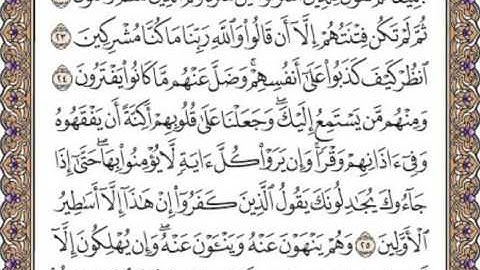 ثُمَّ لَمْ تَكُن فِتْنَتُهُمْ إِلَّآ أَن قَالُوا۟ وَٱللَّهِ رَبِّنَا مَا كُنَّا مُشْرِكِينَ ٢٣
ٱنظُرْ كَيْفَ كَذَبُوا۟ عَلَىٰٓ أَنفُسِهِمْ ۚ وَضَلَّ عَنْهُم مَّا كَانُوا۟ يَفْتَرُونَ ٢٤
وَمِنْهُم مَّن يَسْتَمِعُ إِلَيْكَ ۖ وَجَعَلْنَا عَلَىٰ قُلُوبِهِمْ أَكِنَّةً أَن يَفْقَهُوهُ
وَفِىٓ ءَاذَانِهِمْ وَقْرًا ۚ وَإِن يَرَوْا۟ كُلَّ ءَايَةٍ لَّا يُؤْمِنُوا۟ بِهَا ۚ حَتَّىٰٓ إِذَا
جَآءُوكَ يُجَٰدِلُونَكَ يَقُولُ ٱلَّذِينَ كَفَرُوٓا۟ إِنْ هَٰذَآ إِلَّآ أَسَٰطِيرُ
ٱلْأَوَّلِينَ ٢٥ وَهُمْ يَنْهَوْنَ عَنْهُ وَيَنْـَٔوْنَ عَنْهُ ۖ وَإِن يُهْلِكُونَ إِلَّآ